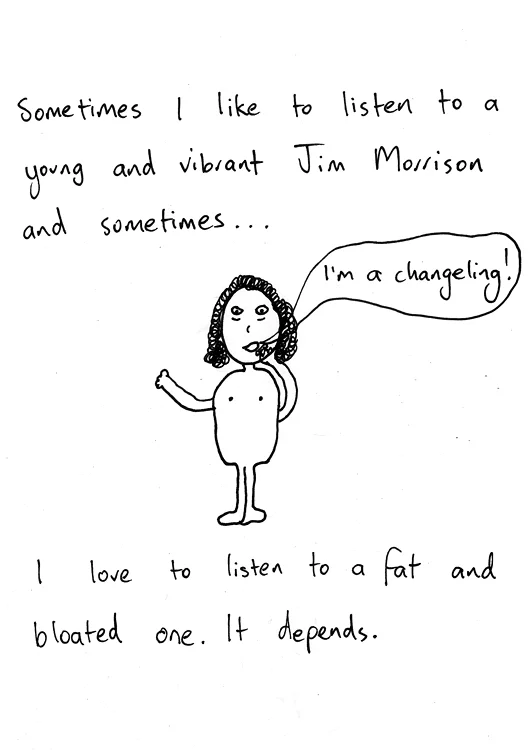 Sometimes I like to listen to a
young and vibrant Jim Morrison
and sometimes...
I'm a changeling!
I love to listen to a fat and
bloated one. It depends.